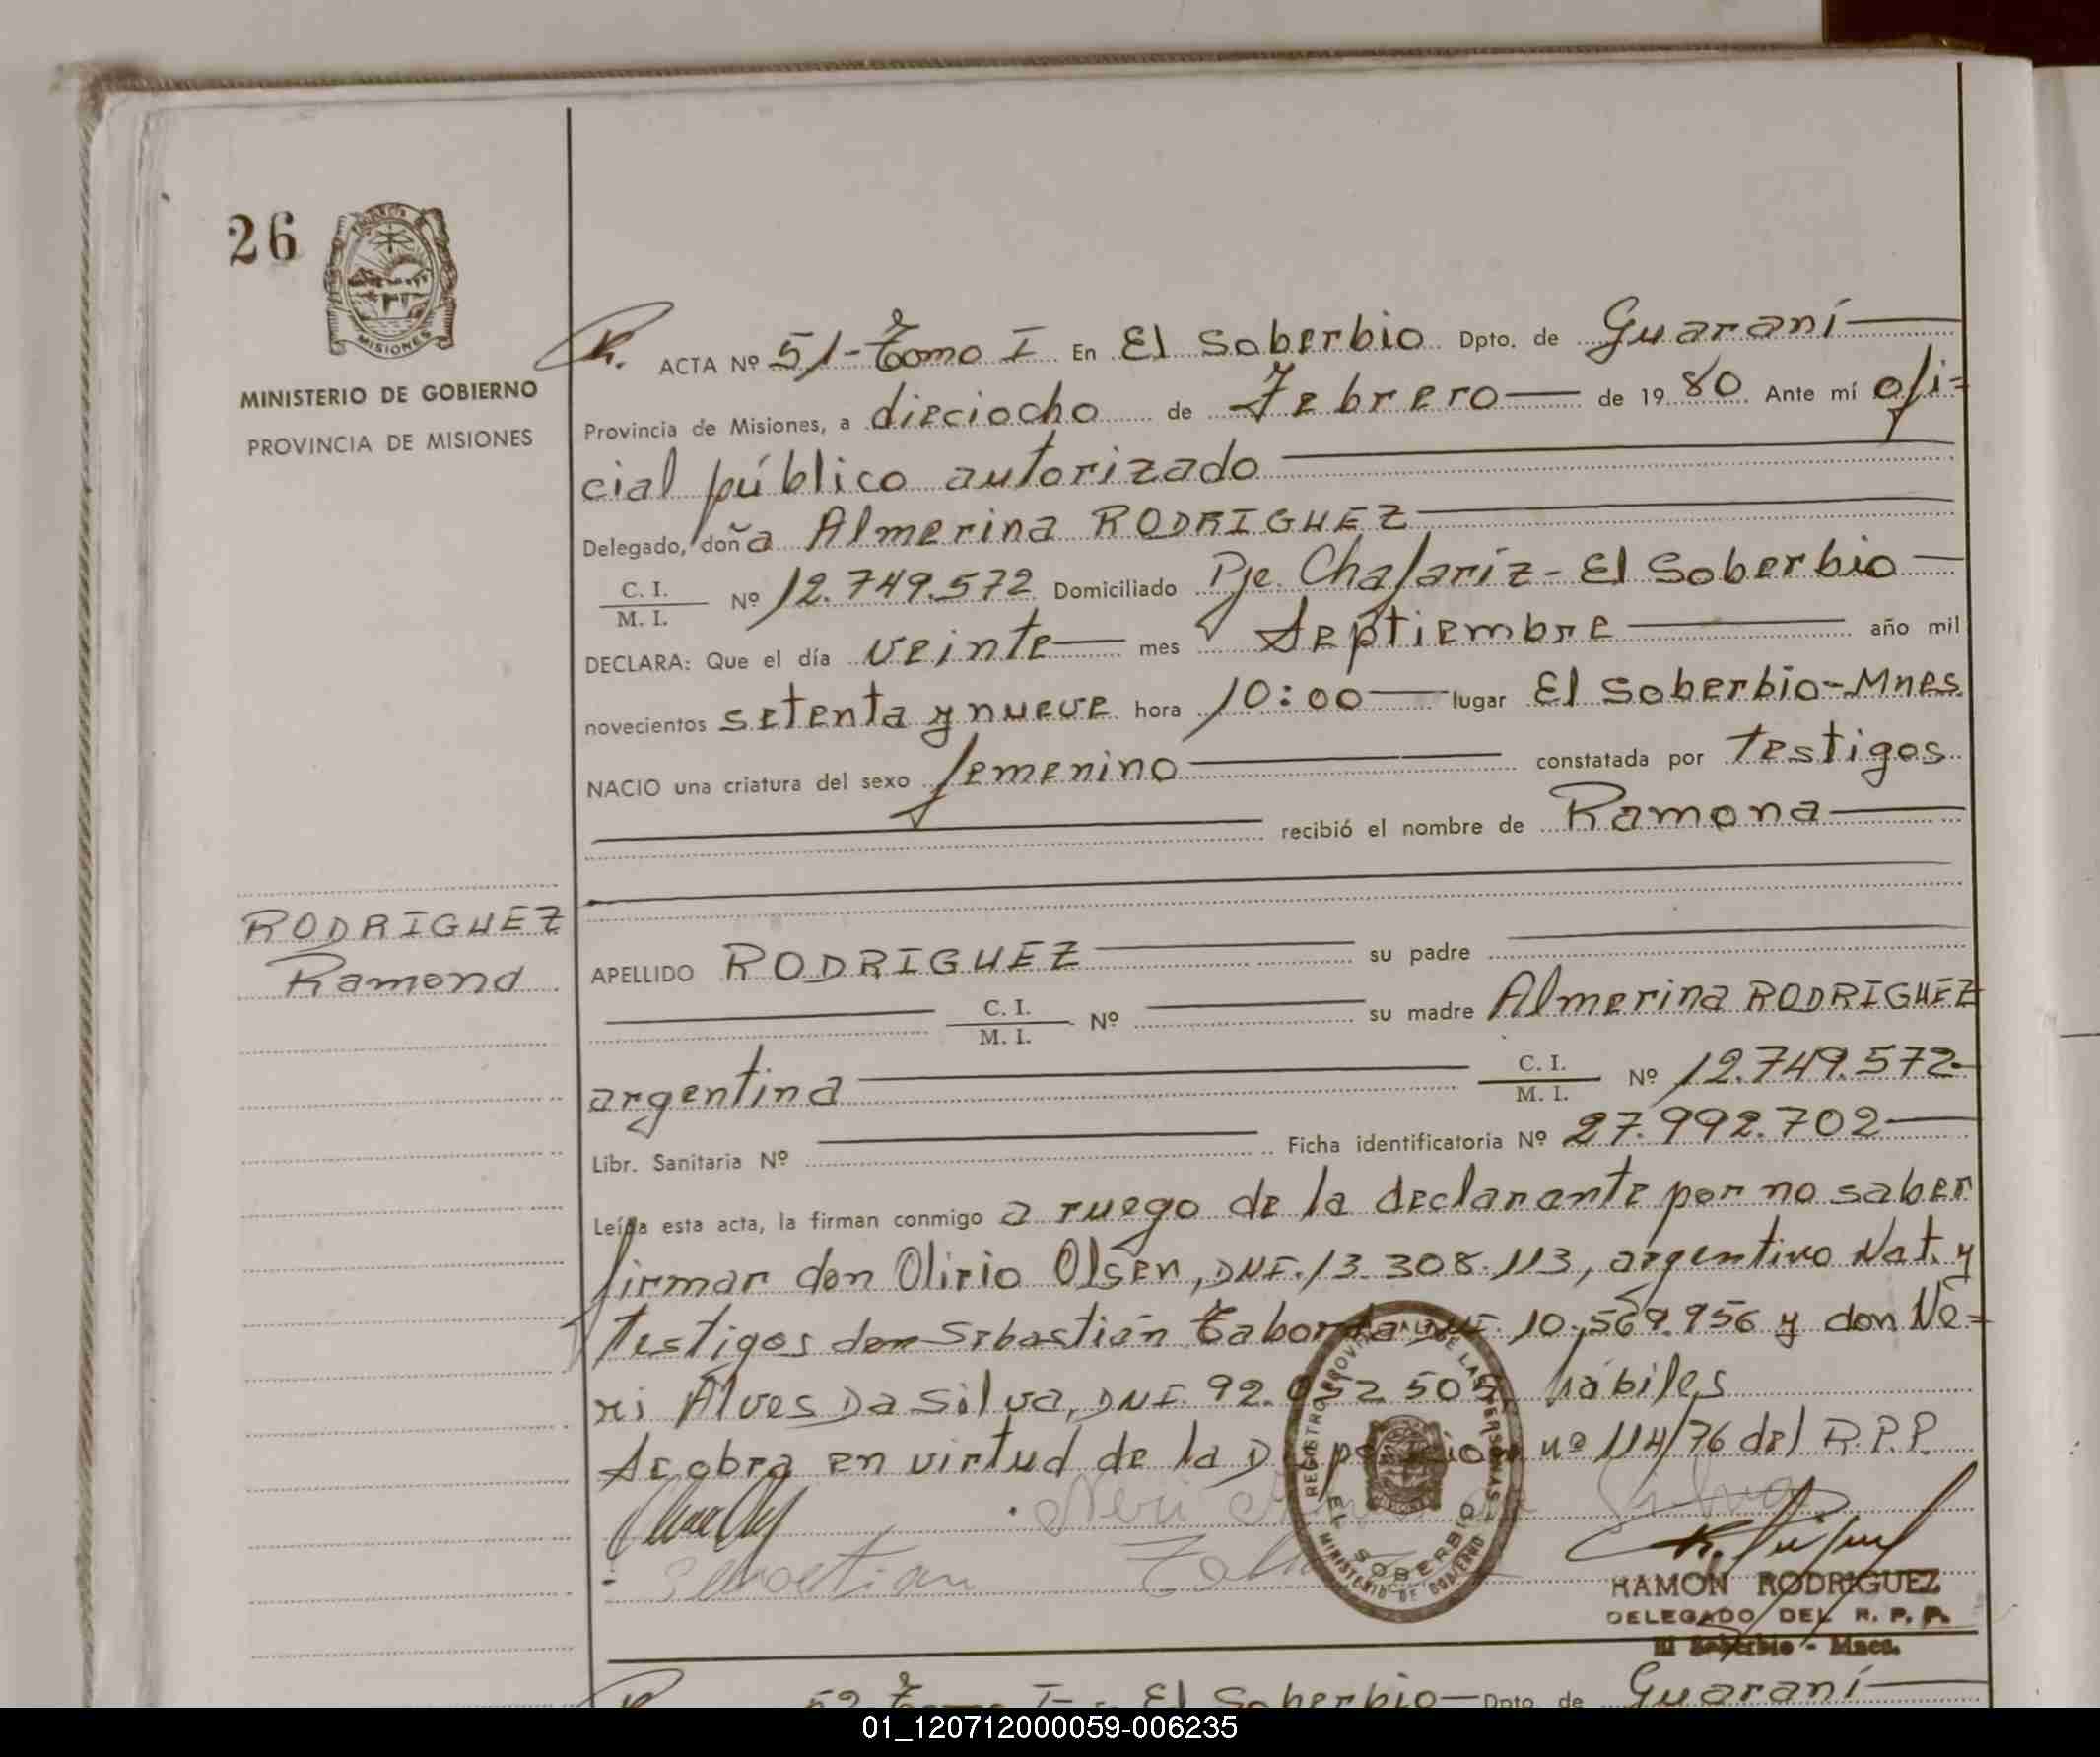 26
MISIONES
MINISTERIO DE GOBIERNO
PROVINCIA DE MISIONES
ACTA Nº 51-Tomo I En El Soberbio Dpto. de Guaraní
Provincia de Misiones, a dieciocho de Febrero de 1980 Ante mí ofi=
cial público autorizado
Delegado, doña Almerina RODRIGUEZ
C. I.
M. I. Nº 12.749.572 Domiciliado Pje. Chafariz - El Soberbio
DECLARA: Que el día veinte mes Septiembre año mil
novecientos setenta y nueve hora 10:00 lugar El Soberbio-Mnes.
NACIO una criatura del sexo femenino constatada por Testigos
recibió el nombre de Ramona
RODRIGUEZ
Ramona
APELLIDO RODRIGUEZ su padre
C. I.
M. I. Nº su madre Almerina RODRIGUEZ
argentina C. I.
M. I. Nº 12.749.572-
Libr. Sanitaria Nº Ficha identificatoria Nº 27.992.702
Leída esta acta, la firman conmigo a ruego de la declarante por no saber
firmar don Olirio Olsen, DNI. 13.308.113, argentino Nat. y
Testigos don Sebastián Taborda DNI 10.569.956 y don Ne=
ri Alves Da Silva, DNI. 92. hábiles
Se obra en virtud de la Disposicion nº 114/76 del R.P.P.
Neri Silva
Sebastian
REGISTRO PROVINCIAL DE LAS PERSONAS
EL SOBERBIO
MINISTERIO DE GOBIERNO
RAMON RODRIGUEZ
DELEGADO DEL R. P. P.
El Soberbio - Mnes.
52 Tomo I En El Soberbio Dpto. de Guaraní
01_120712000059-006235